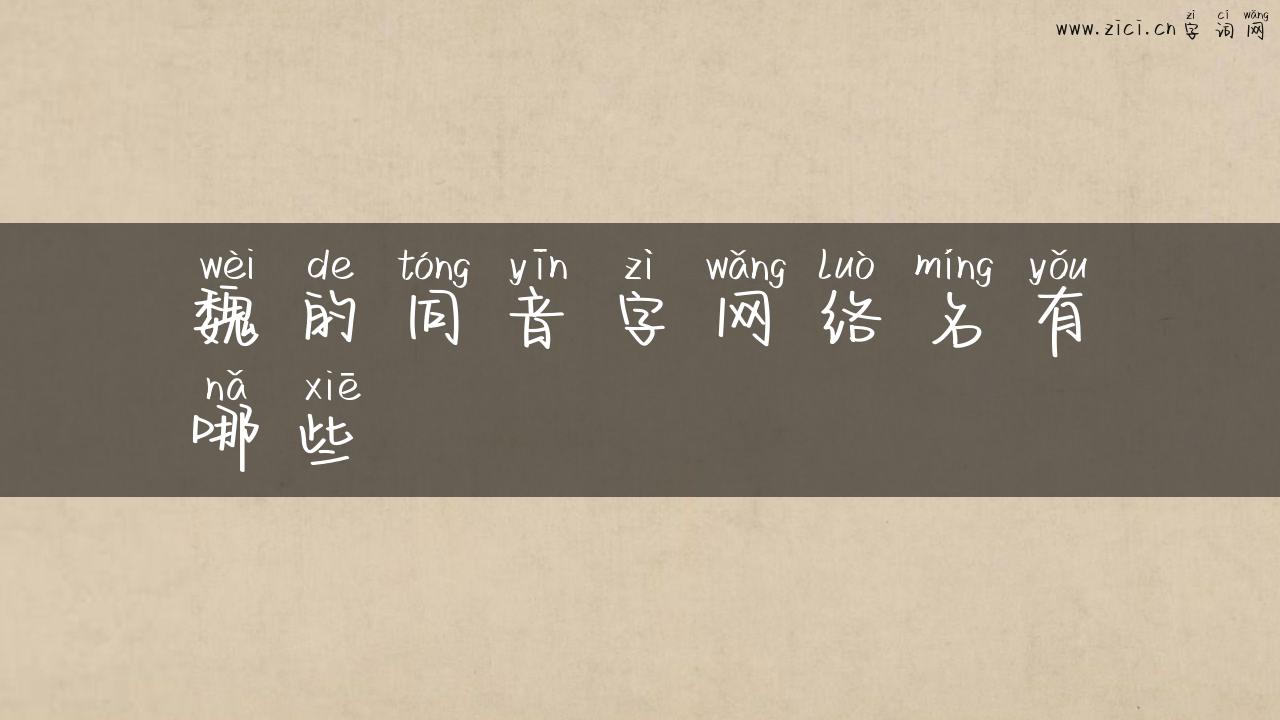 zì cí wǎng
www.zici.cn 字词网
wèi de tóng yīn zì wǎng luò míng yǒu
魏的同音字网络名有
nǎ xiē
哪些